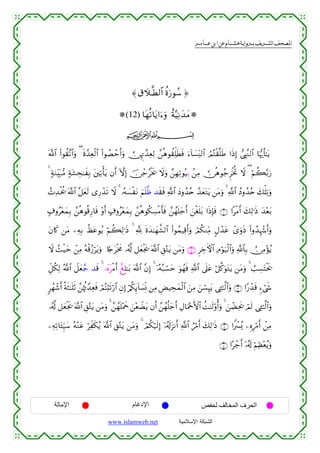 المصحف الشريف برواية هشام عن ابن عامر
﴿ سُورَةُ ٱلطَّلَٰقِ ﴾
* مَدَنِيَّةٌ وَءَايَاتُهَا (12) *
بِسْمِ ٱللَّهِ ٱلرَّحْمَٰنِ ٱلرَّحِيمِ
يَٰٓأَيُّهَا ٱلنَّبِيُّ إِذَا طَلَّقْتُمُ ٱلنِّسَآءَ فَطَلِّقُوهُنَّ لِعِدَّتِهِنَّ وَأَحْصُواْ ٱلْعِدَّةَ ۖ وَٱتَّقُواْ ٱللَّهَ
رَبَّكُمْ ۖ لَا تُخْرِجُوهُنَّ مِنۢ بِيُوتِهِنَّ وَلَا يَخْرُجْنَ إِلَّآ أَن يَأْتِينَ بِفَٰحِشَةٍ مُّبَيِّنَةٍ ۚ
وَتِلْكَ حُدُودُ ٱللَّهِ ۚ وَمَن يَتَعَدَّ حُدُودَ ٱللَّهِ فَقَد ظَّلَمَ نَفْسَهُۥ ۚ لَا تَدْرِي لَعَلَّ ٱللَّهَ يُحْدِثُ
بَعْدَ ذَٰلِكَ أَمْرًا ۝ فَإِذَا بَلَغْنَ أَجَلَهُنَّ فَأَمْسِكُوهُنَّ بِمَعْرُوفٍ أَوْ فَارِقُوهُنَّ بِمَعْرُوفٍ
وَأَشْهِدُواْ ذَوَيْ عَدْلٍ مِّنكُمْ وَأَقِيمُواْ ٱلشَّهَٰدَةَ لِلَّهِ ۚ ذَٰلِكُمْ يُوعَظُ بِهِۦ مَن كَانَ
يُؤْمِنُ بِٱللَّهِ وَٱلْيَوْمِ ٱلْأٓخِرِ ۝ وَمَن يَتَّقِ ٱللَّهَ يَجْعَل لَّهُۥ مَخْرَجًا وَيَرْزُقْهُ مِنْ حَيْثُ لَا
يَحْتَسِبُ ۚ وَمَن يَتَوَكَّلْ عَلَى ٱللَّهِ فَهُوَ حَسْبُهُۥٓ ۚ إِنَّ ٱللَّهَ بَٰلِغٌ أَمْرَهُۥ ۚ قَد جَّعَلَ ٱللَّهُ لِكُلِّ
شَيْءٍ قَدْرًا ۝ وَٱلَّٰٓـِٔي يَئِسْنَ مِنَ ٱلْمَحِيضِ مِن نِّسَآئِكُمْ إِنِ ٱرْتَبْتُمْ فَعِدَّتُهُنَّ ثَلَٰثَةُ أَشْهُرٍ
وَٱلَّٰٓـِٔي لَمْ يَحِضْنَ ۚ وَأُوْلَٰتُ ٱلْأَحْمَالِ أَجَلُهُنَّ أَن يَضَعْنَ حَمْلَهُنَّ ۚ وَمَن يَتَّقِ ٱللَّهَ يَجْعَل لَّهُۥ
مِنْ أَمْرِهِۦ يُسْرًا ۝ ذَٰلِكَ أَمْرُ ٱللَّهِ أَنزَلَهُۥٓ إِلَيْكُمْ ۚ وَمَن يَتَّقِ ٱللَّهَ يُكَفِّرْ عَنْهُ سَيِّـَٔاتِهِۦ
وَيُعْظِمْ لَهُۥٓ أَجْرًا ۝
الحرف المخالف لحفص الإدغام الإمالة
الشبكة الإسلامية www.islamweb.net